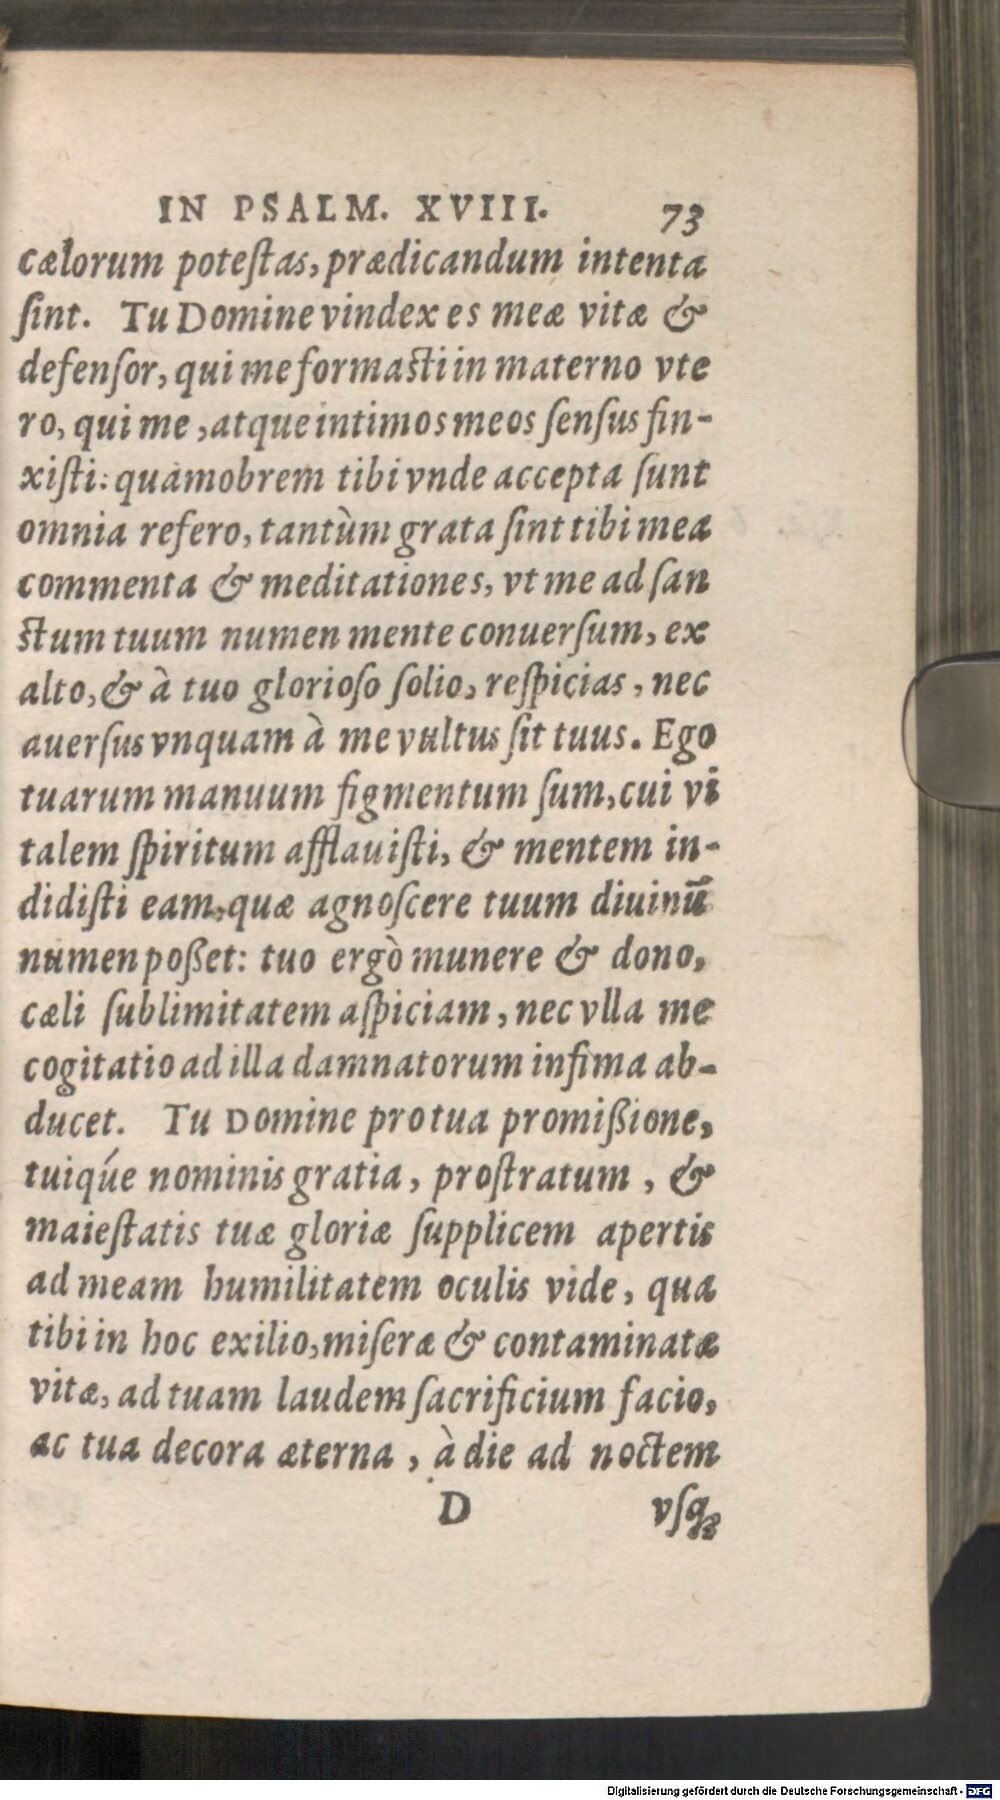 IN PSALM. XVIII. 73
cælorum poteſtas, prædicandum intenta
ſint. Tu Domine vindex es meæ vitæ &
defenſor, qui me formaſti in materno vte
ro, qui me, atque intimos meos ſenſus fin-
xiſti: quamobrem tibi vnde accepta ſunt
omnia refero, tantùm grata ſint tibi mea
commenta & meditationes, vt me ad ſan
ctum tuum numen mente conuerſum, ex
alto, & à tuo glorioſo ſolio, reſpicias, nec
auerſus vnquam à me vultus ſit tuus. Ego
tuarum manuum figmentum ſum, cui vi
talem ſpiritum afflauiſti, & mentem in-
didiſti eam, quæ agnoſcere tuum diuinū
numen poßet: tuo ergò munere & dono,
cæli ſublimitatem aſpiciam, nec vlla me
cogitatio ad illa damnatorum infima ab-
ducet. Tu Domine pro tua promißione,
tuiq́ue nominis gratia, proſtratum, &
maieſtatis tuæ gloriæ ſupplicem apertis
ad meam humilitatem oculis vide, qua
tibi in hoc exilio, miſeræ & contaminatæ
vitæ, ad tuam laudem ſacrificium facio,
ac tua decora æterna, à die ad noctem
D vſq;
Digitalisierung gefördert durch die Deutsche Forschungsgemeinschaft - DFG